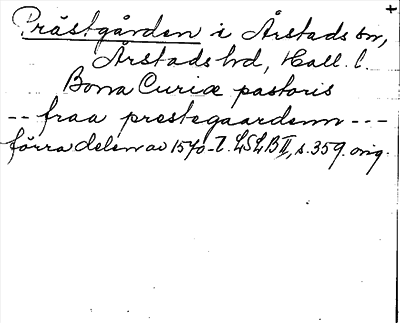 Prästgården i Årstads sn,
Årstads hd, Hall. l.
Bona Curiæ pastoris
-- fraa prestegaardenn ---
förra delen av 1570-t. LSLB II, s. 359. orig.